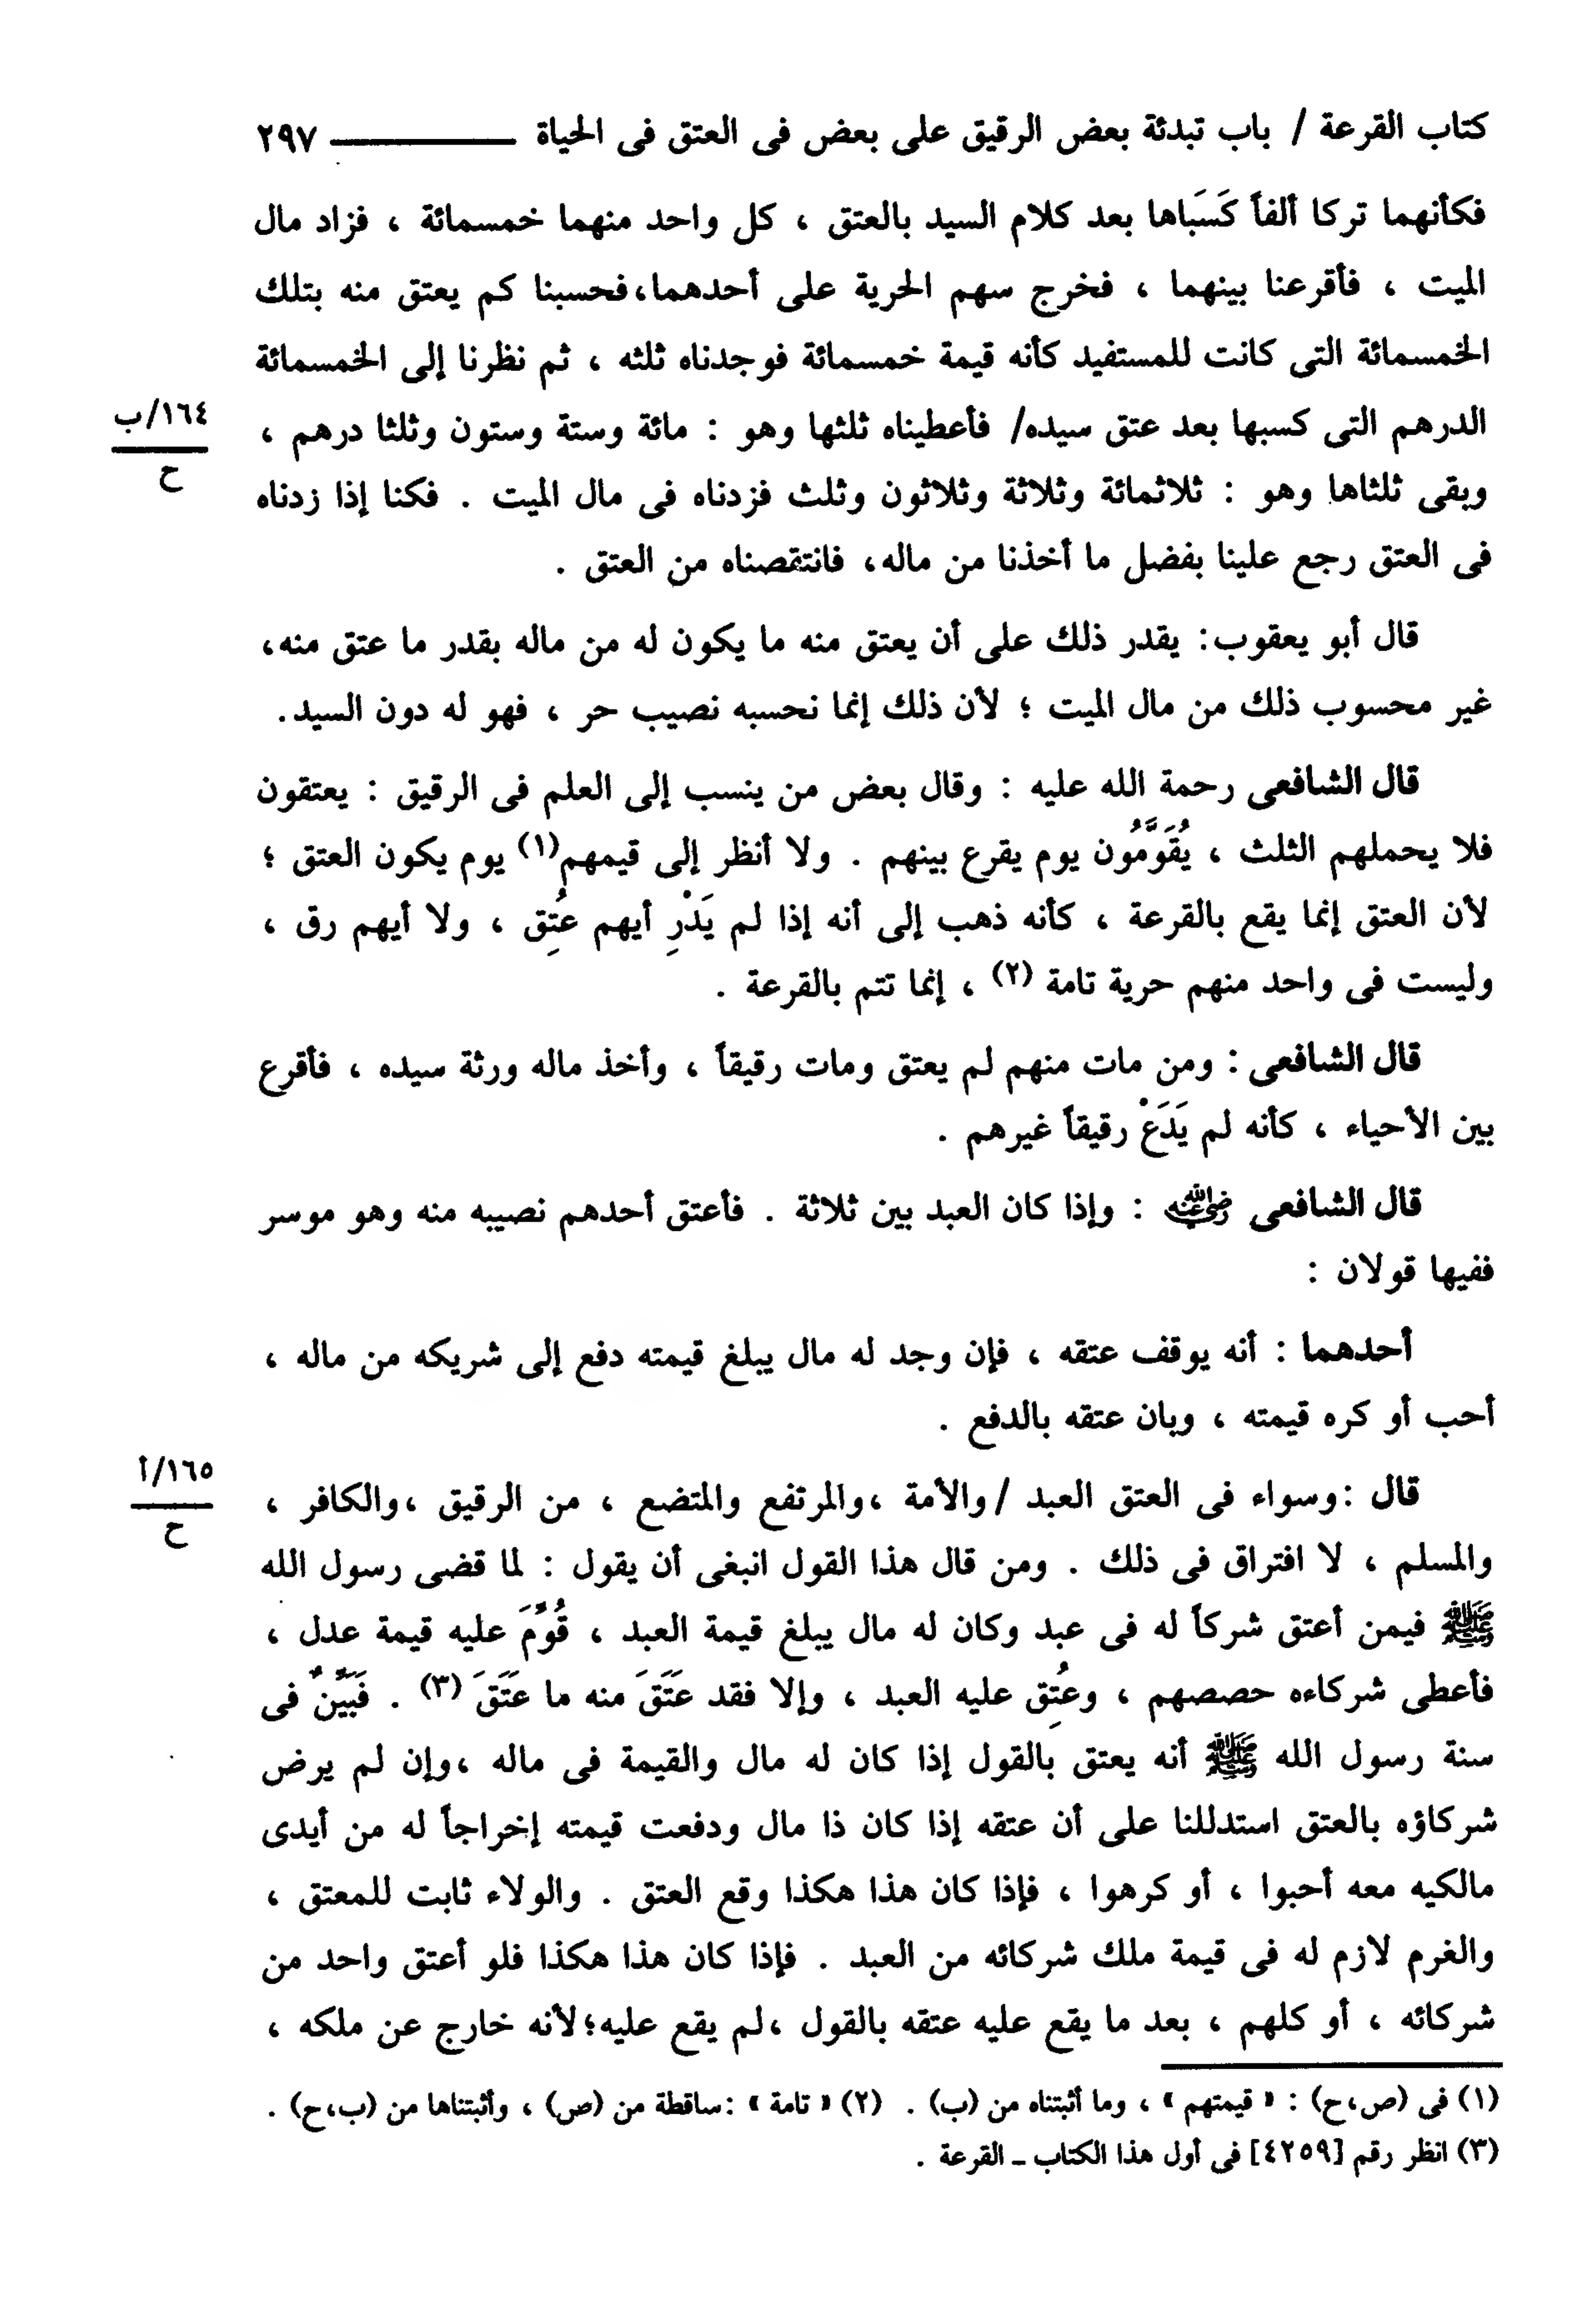 كتاب القرعة / باب تبدئة بعض الرقيق على بعض فى العتق فى الحياة ــــــــــ ٢٩٧
فكأنهما تركا ألفاً كَسَباها بعد كلام السيد بالعتق ، كل واحد منهما خمسمائة ، فزاد مال
الميت ، فأقرعنا بينهما ، فخرج سهم الحرية على أحدهما،فحسبنا كم يعتق منه بتلك
الخمسمائة التى كانت للمستفيد كأنه قيمة خمسمائة فوجدناه ثلثه ، ثم نظرنا إلى الخمسمائة
الدرهم التى كسبها بعد عتق سيده/ فأعطيناه ثلثها وهو : مائة وستة وستون وثلثا درهم ،
١٦٤/ب
ح
وبقى ثلثاها وهو : ثلاثمائة وثلاثة وثلاثون وثلث فزدناه فى مال الميت . فكنا إذا زدناه
فى العتق رجع علينا بفضل ما أخذنا من ماله، فانتقصناه من العتق .
قال أبو يعقوب: يقدر ذلك على أن يعتق منه ما يكون له من ماله بقدر ما عتق منه،
غير محسوب ذلك من مال الميت ؛ لأن ذلك إنما نحسبه نصيب حر ، فهو له دون السيد.
قال الشافعى رحمة الله عليه : وقال بعض من ينسب إلى العلم فى الرقيق : يعتقون
فلا يحملهم الثلث ، يُقَوَّمُون يوم يقرع بينهم . ولا أنظر إلى قيمهم(١) يوم يكون العتق ؛
لأن العتق إنما يقع بالقرعة ، كأنه ذهب إلى أنه إذا لم يَدْرِ أيهم عُتِق ، ولا أيهم رق ،
وليست فى واحد منهم حرية تامة (٢) ، إنما تتم بالقرعة .
قال الشافعى : ومن مات منهم لم يعتق ومات رقيقاً ، وأخذ ماله ورثة سيده ، فأقرع
بين الأحياء ، كأنه لم يَدَعْ رقيقاً غيرهم .
قال الشافعى رضي الله عنه : وإذا كان العبد بين ثلاثة . فأعتق أحدهم نصيبه منه وهو موسر
ففيها قولان :
أحدهما : أنه يوقف عتقه ، فإن وجد له مال يبلغ قيمته دفع إلى شريكه من ماله ،
أحب أو كره قيمته ، وبان عتقه بالدفع .
قال :وسواء فى العتق العبد /والأمة ،والمرتفع والمتضع ، من الرقيق ،والكافر ،
١٦٥/أ
ح
والمسلم ، لا افتراق فى ذلك . ومن قال هذا القول انبغى أن يقول : لما قضى رسول الله
ﷺ فيمن أعتق شركاً له فى عبد وكان له مال يبلغ قيمة العبد ، قُوِّمَ عليه قيمة عدل ،
فأعطى شركاءه حصصهم ، وعُتِق عليه العبد ، وإلا فقد عَتَقَ منه ما عَتَقَ (٣) . فَبَيِّنٌ فى
سنة رسول الله ﷺ أنه يعتق بالقول إذا كان له مال والقيمة فى ماله ،وإن لم يرض
شركاؤه بالعتق استدللنا على أن عتقه إذا كان ذا مال ودفعت قيمته إخراجاً له من أيدى
مالكيه معه أحبوا ، أو كرهوا ، فإذا كان هذا هكذا وقع العتق . والولاء ثابت للمعتق ،
والغرم لازم له فى قيمة ملك شركائه من العبد . فإذا كان هذا هكذا فلو أعتق واحد من
شركائه ، أو كلهم ، بعد ما يقع عليه عتقه بالقول ،لم يقع عليه؛لأنه خارج عن ملكه ،
(١) فى (ص،ح) : « قيمتهم » ، وما أثبتناه من (ب) . (٢) « تامة » :ساقطة من (ص) ، وأثبتناها من (ب،ح) .
(٣) انظر رقم [٤٢٥٩] فى أول هذا الكتاب ـ القرعة .